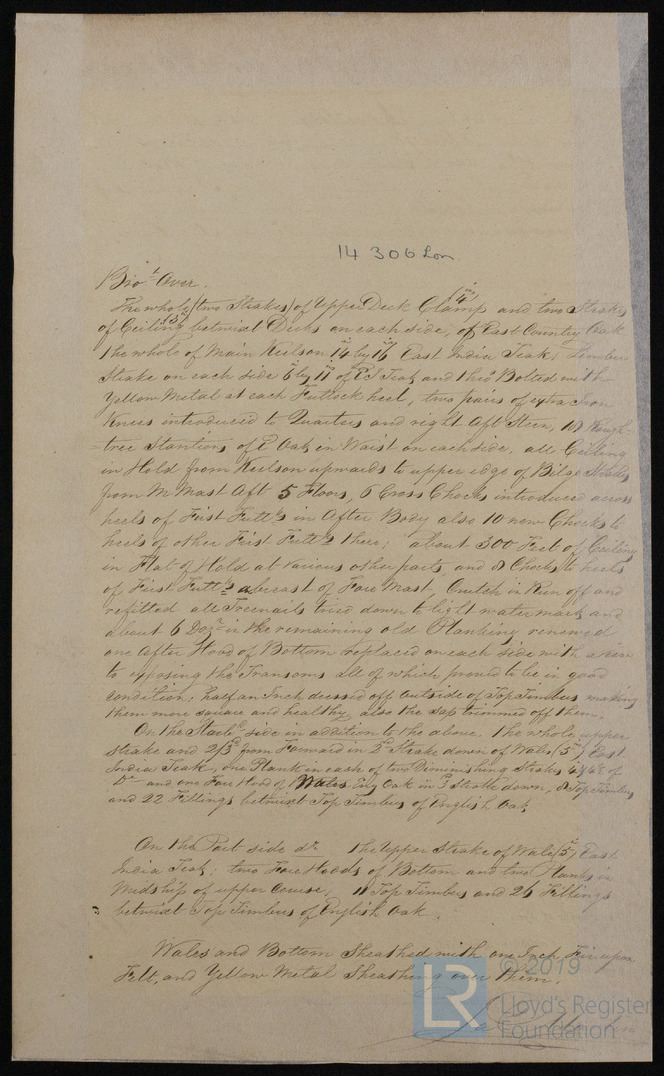 14 306 Lon.
Bro't Over.
The whole (two Strakes) of Upper Deck Clamp (4 ins) and two Strakes
of Ceiling (3 in) betwixt Decks on each side, of East Country Oak
the whole of Main Keelson 14 by 16 East India Teak; Limber
Strake on each side 6 by 11 of E I Teak and thro' Bolted with
Yellow Metal at each Futtock heel, two pairs of extra Iron
Knees introduced to Quarters and right Aft Stern, 10 Rough-
=tree Stantions of E Oak in Waist on each side, all Ceiling
in Hold from Keelson upwards to upper edge of Bilge Strakes
from M Mast Aft 5 Floors, 6 Cross Chocks introduced across
heels of First Futt's in After Body also 10 new Chocks to
heels of other First Futt's there; about 300 Feet of Ceiling
in Flat of Hold at various other parts, and 8 Chocks to heels
of First Futt's abreast of Fore Mast, Crutch in Run off and
refitted all Treenails tried down to light water mark and
about 6 Doz'n in the remaining old Planking renewed
one After Hood of Bottom replaced on each side with a view
to exposing the Transoms all of which proved to be in good
condition; half an Inch dressed off outside of Top Timbers making
them more square and healthy, also the sap trimmed off them.
On the Starb'd side in addition to the above, the whole upper
Strake and 2/3ds from Forward in 2d Strake down of Wales (5 in) East
India Teak, one Plank in each of two Diminishing Strakes of
Do and one Fore Hood of Wales Eng Oak in 3d Strake down, 8 Top Timbers
and 22 Fillings betwixt Top Timbers of English Oak
On the Port side do the Upper Strake of Wale (5 in) East
India Teak; two Fore Hoods of Bottom and two Planks in
Midship of upper Course, 11 Top Timbers and 26 Fillings
betwixt Top Timbers of English Oak.
Wales and Bottom Sheathed with one Inch Fir upon
Felt, and Yellow Metal Sheathing over them.
LR
© 2019
Lloyd's Register
Foundation